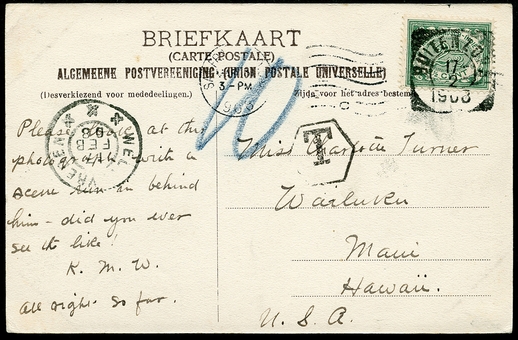 BRIEFKAART
(CARTE POSTALE)
ALGEMEENE POSTVEREENIGING (UNION POSTALE UNIVERSELLE)
(Desverkiezend voor mededeelingen.)
Zijde voor het adres bestemd
3-PM
1908
17
2
1908
WELTEVREDEN
FEB
08
T
Please look at the
photograph with a
scene run in behind
him - did you ever
see the like!
K. M. W.
All right so far.
Miss Charlotte Turner
Wailuku
Maui
Hawaii.
U. S. A.